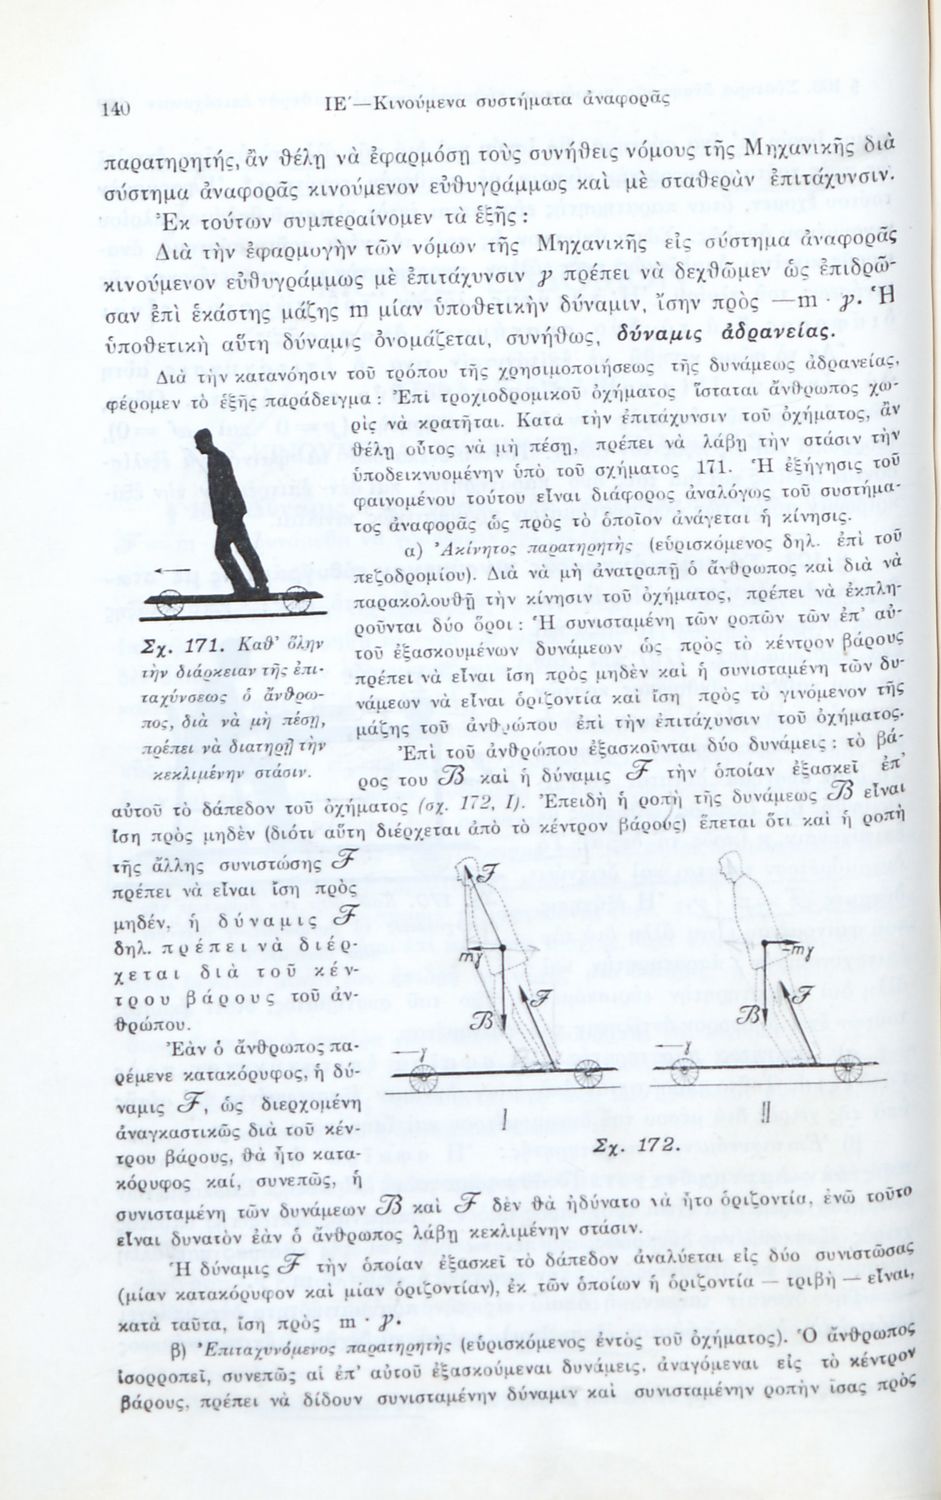 140
ΙΕ΄—Κινούμενα συστήματα ἀναφορᾶς
παρατηρητής, ἂν θέλῃ νὰ ἐφαρμόσῃ τοὺς συνήθεις νόμους τῆς Μηχανικῆς διὰ
σύστημα ἀναφορᾶς κινούμενον εὐθυγράμμως καὶ μὲ σταθερὰν ἐπιτάχυνσιν.
Ἐκ τούτων συμπεραίνομεν τὰ ἑξῆς :
Διὰ τὴν ἐφαρμογὴν τῶν νόμων τῆς Μηχανικῆς εἰς σύστημα ἀναφορᾶς
κινούμενον εὐθυγράμμως μὲ ἐπιτάχυνσιν γ πρέπει νὰ δεχθῶμεν ὡς ἐπιδρῶ-
σαν ἐπὶ ἑκάστης μάζης m μίαν ὑποθετικὴν δύναμιν, ἴσην πρὸς —m · γ. Ἡ
ὑποθετικὴ αὕτη δύναμις ὀνομάζεται, συνήθως, δύναμις ἀδρανείας.
Διὰ τὴν κατανόησιν τοῦ τρόπου τῆς χρησιμοποιήσεως τῆς δυνάμεως ἀδρανείας,
φέρομεν τὸ ἑξῆς παράδειγμα : Ἐπὶ τροχιοδρομικοῦ ὀχήματος ἵσταται ἄνθρωπος χω-
ρὶς νὰ κρατῆται. Κατὰ τὴν ἐπιτάχυνσιν τοῦ ὀχήματος, ἂν
θέλῃ οὗτος νὰ μὴ πέσῃ, πρέπει νὰ λάβῃ τὴν στάσιν τὴν
ὑποδεικνυομένην ὑπὸ τοῦ σχήματος 171. Ἡ ἐξήγησις τοῦ
φαινομένου τούτου εἶναι διάφορος ἀναλόγως τοῦ συστήμα-
τος ἀναφορᾶς ὡς πρὸς τὸ ὁποῖον ἀνάγεται ἡ κίνησις.
α) Ἀκίνητος παρατηρητὴς (εὑρισκόμενος δηλ. ἐπὶ τοῦ
πεζοδρομίου). Διὰ νὰ μὴ ἀνατραπῇ ὁ ἄνθρωπος καὶ διὰ νὰ
παρακολουθῇ τὴν κίνησιν τοῦ ὀχήματος, πρέπει νὰ ἐκπλη-
ροῦνται δύο ὅροι : Ἡ συνισταμένη τῶν ροπῶν τῶν ἐπ' αὐ-
τοῦ ἐξασκουμένων δυνάμεων ὡς πρὸς τὸ κέντρον βάρους
πρέπει νὰ εἶναι ἴση πρὸς μηδὲν καὶ ἡ συνισταμένη τῶν δυ-
νάμεων νὰ εἶναι ὁριζοντία καὶ ἴση πρὸς τὸ γινόμενον τῆς
μάζης τοῦ ἀνθρώπου ἐπὶ τὴν ἐπιτάχυνσιν τοῦ ὀχήματος.
Ἐπὶ τοῦ ἀνθρώπου ἐξασκοῦνται δύο δυνάμεις : τὸ βά-
ρος του B καὶ ἡ δύναμις F τὴν ὁποίαν ἐξασκεῖ ἐπ'
Σχ. 171. Καθ' ὅλην
τὴν διάρκειαν τῆς ἐπι-
ταχύνσεως ὁ ἄνθρω-
πος, διὰ νὰ μὴ πέσῃ,
πρέπει νὰ διατηρῇ τὴν
κεκλιμένην στάσιν.
αὐτοῦ τὸ δάπεδον τοῦ ὀχήματος (σχ. 172, I). Ἐπειδὴ ἡ ροπὴ τῆς δυνάμεως B εἶναι
ἴση πρὸς μηδὲν (διότι αὕτη διέρχεται ἀπὸ τὸ κέντρον βάρους) ἕπεται ὅτι καὶ ἡ ροπὴ
τῆς ἄλλης συνιστώσης F
πρέπει νὰ εἶναι ἴση πρὸς
μηδέν, ἡ δύναμις F
δηλ. πρέπει νὰ διέρ-
χεται διὰ τοῦ κέν-
τρου βάρους τοῦ ἀν-
θρώπου.
Ἐὰν ὁ ἄνθρωπος πα-
ρέμενε κατακόρυφος, ἡ δύ-
ναμις F, ὡς διερχομένη
ἀναγκαστικῶς διὰ τοῦ κέν-
τρου βάρους, θὰ ἦτο κατα-
κόρυφος καί, συνεπῶς, ἡ
F
mγ
B
F
γ
I
-mγ
B
F
γ
II
Σχ. 172.
συνισταμένη τῶν δυνάμεων B καὶ F δὲν θὰ ἠδύνατο νὰ ἦτο ὁριζοντία, ἐνῶ τοῦτο
εἶναι δυνατὸν ἐὰν ὁ ἄνθρωπος λάβῃ κεκλιμένην στάσιν.
Ἡ δύναμις F τὴν ὁποίαν ἐξασκεῖ τὸ δάπεδον ἀναλύεται εἰς δύο συνιστώσας
(μίαν κατακόρυφον καὶ μίαν ὁριζοντίαν), ἐκ τῶν ὁποίων ἡ ὁριζοντία — τριβὴ — εἶναι,
κατὰ ταῦτα, ἴση πρὸς m · γ.
β) Ἐπιταχυνόμενος παρατηρητὴς (εὑρισκόμενος ἐντὸς τοῦ ὀχήματος). Ὁ ἄνθρωπος
ἰσορροπεῖ, συνεπῶς αἱ ἐπ' αὐτοῦ ἐξασκούμεναι δυνάμεις, ἀναγόμεναι εἰς τὸ κέντρον
βάρους, πρέπει νὰ δίδουν συνισταμένην δύναμιν καὶ συνισταμένην ροπὴν ἴσας πρὸς